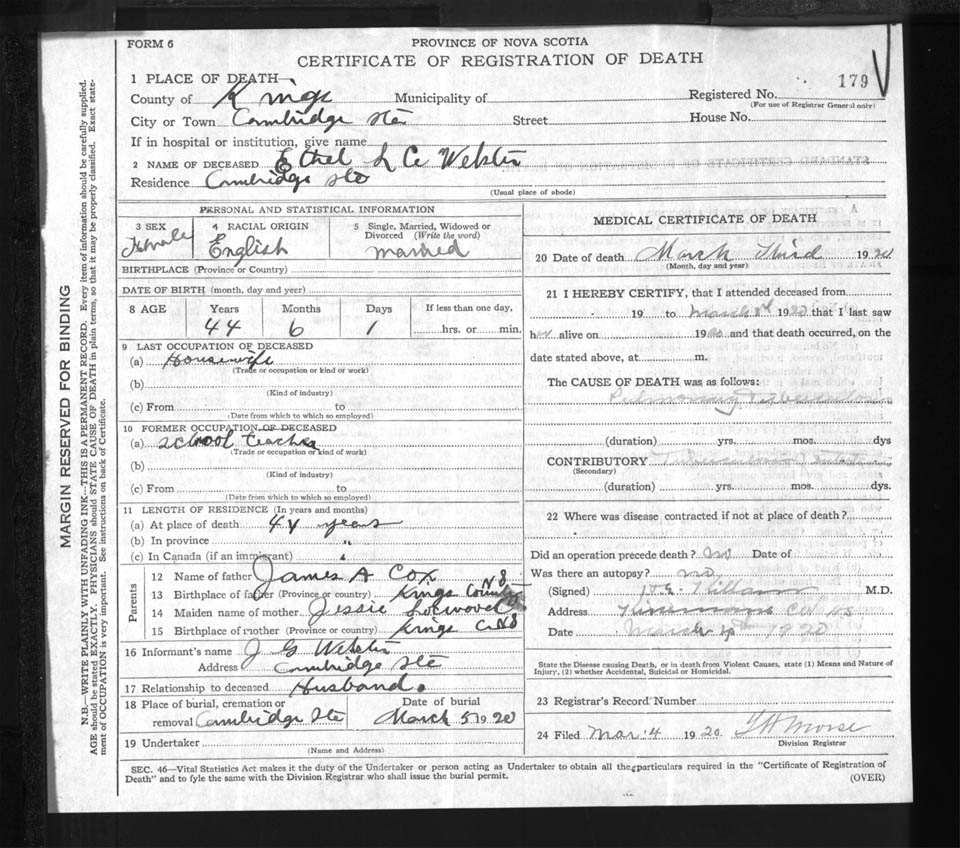 FORM 6
PROVINCE OF NOVA SCOTIA
CERTIFICATE OF REGISTRATION OF DEATH
179
1 PLACE OF DEATH
County of Kings Municipality of Registered No.
(For use of Registrar General only)
City or Town Cambridge Sta Street House No.
If in hospital or institution, give name
2 NAME OF DECEASED Ethel L C Webster
Residence Cambridge Sta
(Usual place of abode)
PERSONAL AND STATISTICAL INFORMATION
3 SEX 4 RACIAL ORIGIN 5 Single, Married, Widowed or Divorced (Write the word)
Female English married
BIRTHPLACE (Province or Country)
DATE OF BIRTH (month, day and year)
8 AGE Years Months Days If less than one day,
44 6 1 hrs. or min.
9 LAST OCCUPATION OF DECEASED
(a) Housewife
(Trade or occupation or kind or work)
(b)
(Kind of industry)
(c) From to
(Date from which to which so employed)
10 FORMER OCCUPATION OF DECEASED
(a) school teacher
(Trade or occupation or kind of work)
(b)
(Kind of industry)
(c) From to
(Date from which to which so employed)
11 LENGTH OF RESIDENCE (In years and months)
(a) At place of death 44 years
(b) In province "
(c) In Canada (if an immigrant) "
Parents
12 Name of father James A Cox
13 Birthplace of father (Province or country) Kings County NS
14 Maiden name of mother Jessie
15 Birthplace of mother (Province or country) Kings Co NS
16 Informant's name J G Webster
Address Cambridge Sta
17 Relationship to deceased Husband.
18 Place of burial, cremation or Date of burial
removal Cambridge Sta March 5 1920
19 Undertaker
(Name and Address)
MEDICAL CERTIFICATE OF DEATH
20 Date of death March Third 1920
(Month, day and year)
21 I HEREBY CERTIFY, that I attended deceased from
19 to March 1920 that I last saw
her alive on 1920 and that death occurred, on the
date stated above, at m.
The CAUSE OF DEATH was as follows:
Pulmonary Tuberculosis
(duration) yrs. mos. dys
CONTRIBUTORY
(Secondary)
(duration) yrs. mos. dys.
22 Where was disease contracted if not at place of death?
Did an operation precede death? no Date of
Was there an autopsy? no
(Signed) M.D.
Address
Date March 4th 1920
State the Disease causing Death, or in death from Violent Causes, state (1) Means and Nature of
Injury, (2) whether Accidental, Suicidal or Homicidal.
23 Registrar's Record Number
24 Filed Mar. 4 1920. Morse
Division Registrar
SEC. 46—Vital Statistics Act makes it the duty of the Undertaker or person acting as Undertaker to obtain all the particulars required in the "Certificate of Registration of
Death" and to fyle the same with the Division Registrar who shall issue the burial permit.
(OVER)
MARGIN RESERVED FOR BINDING
N.B.—WRITE PLAINLY WITH UNFADING INK—THIS IS A PERMANENT RECORD. Every item of information should be carefully supplied.
AGE should be stated EXACTLY. PHYSICIANS should STATE CAUSE OF DEATH in plain terms, so that it may be properly classified. Exact state-
ment of OCCUPATION is very important. See instructions on back of Certificate.